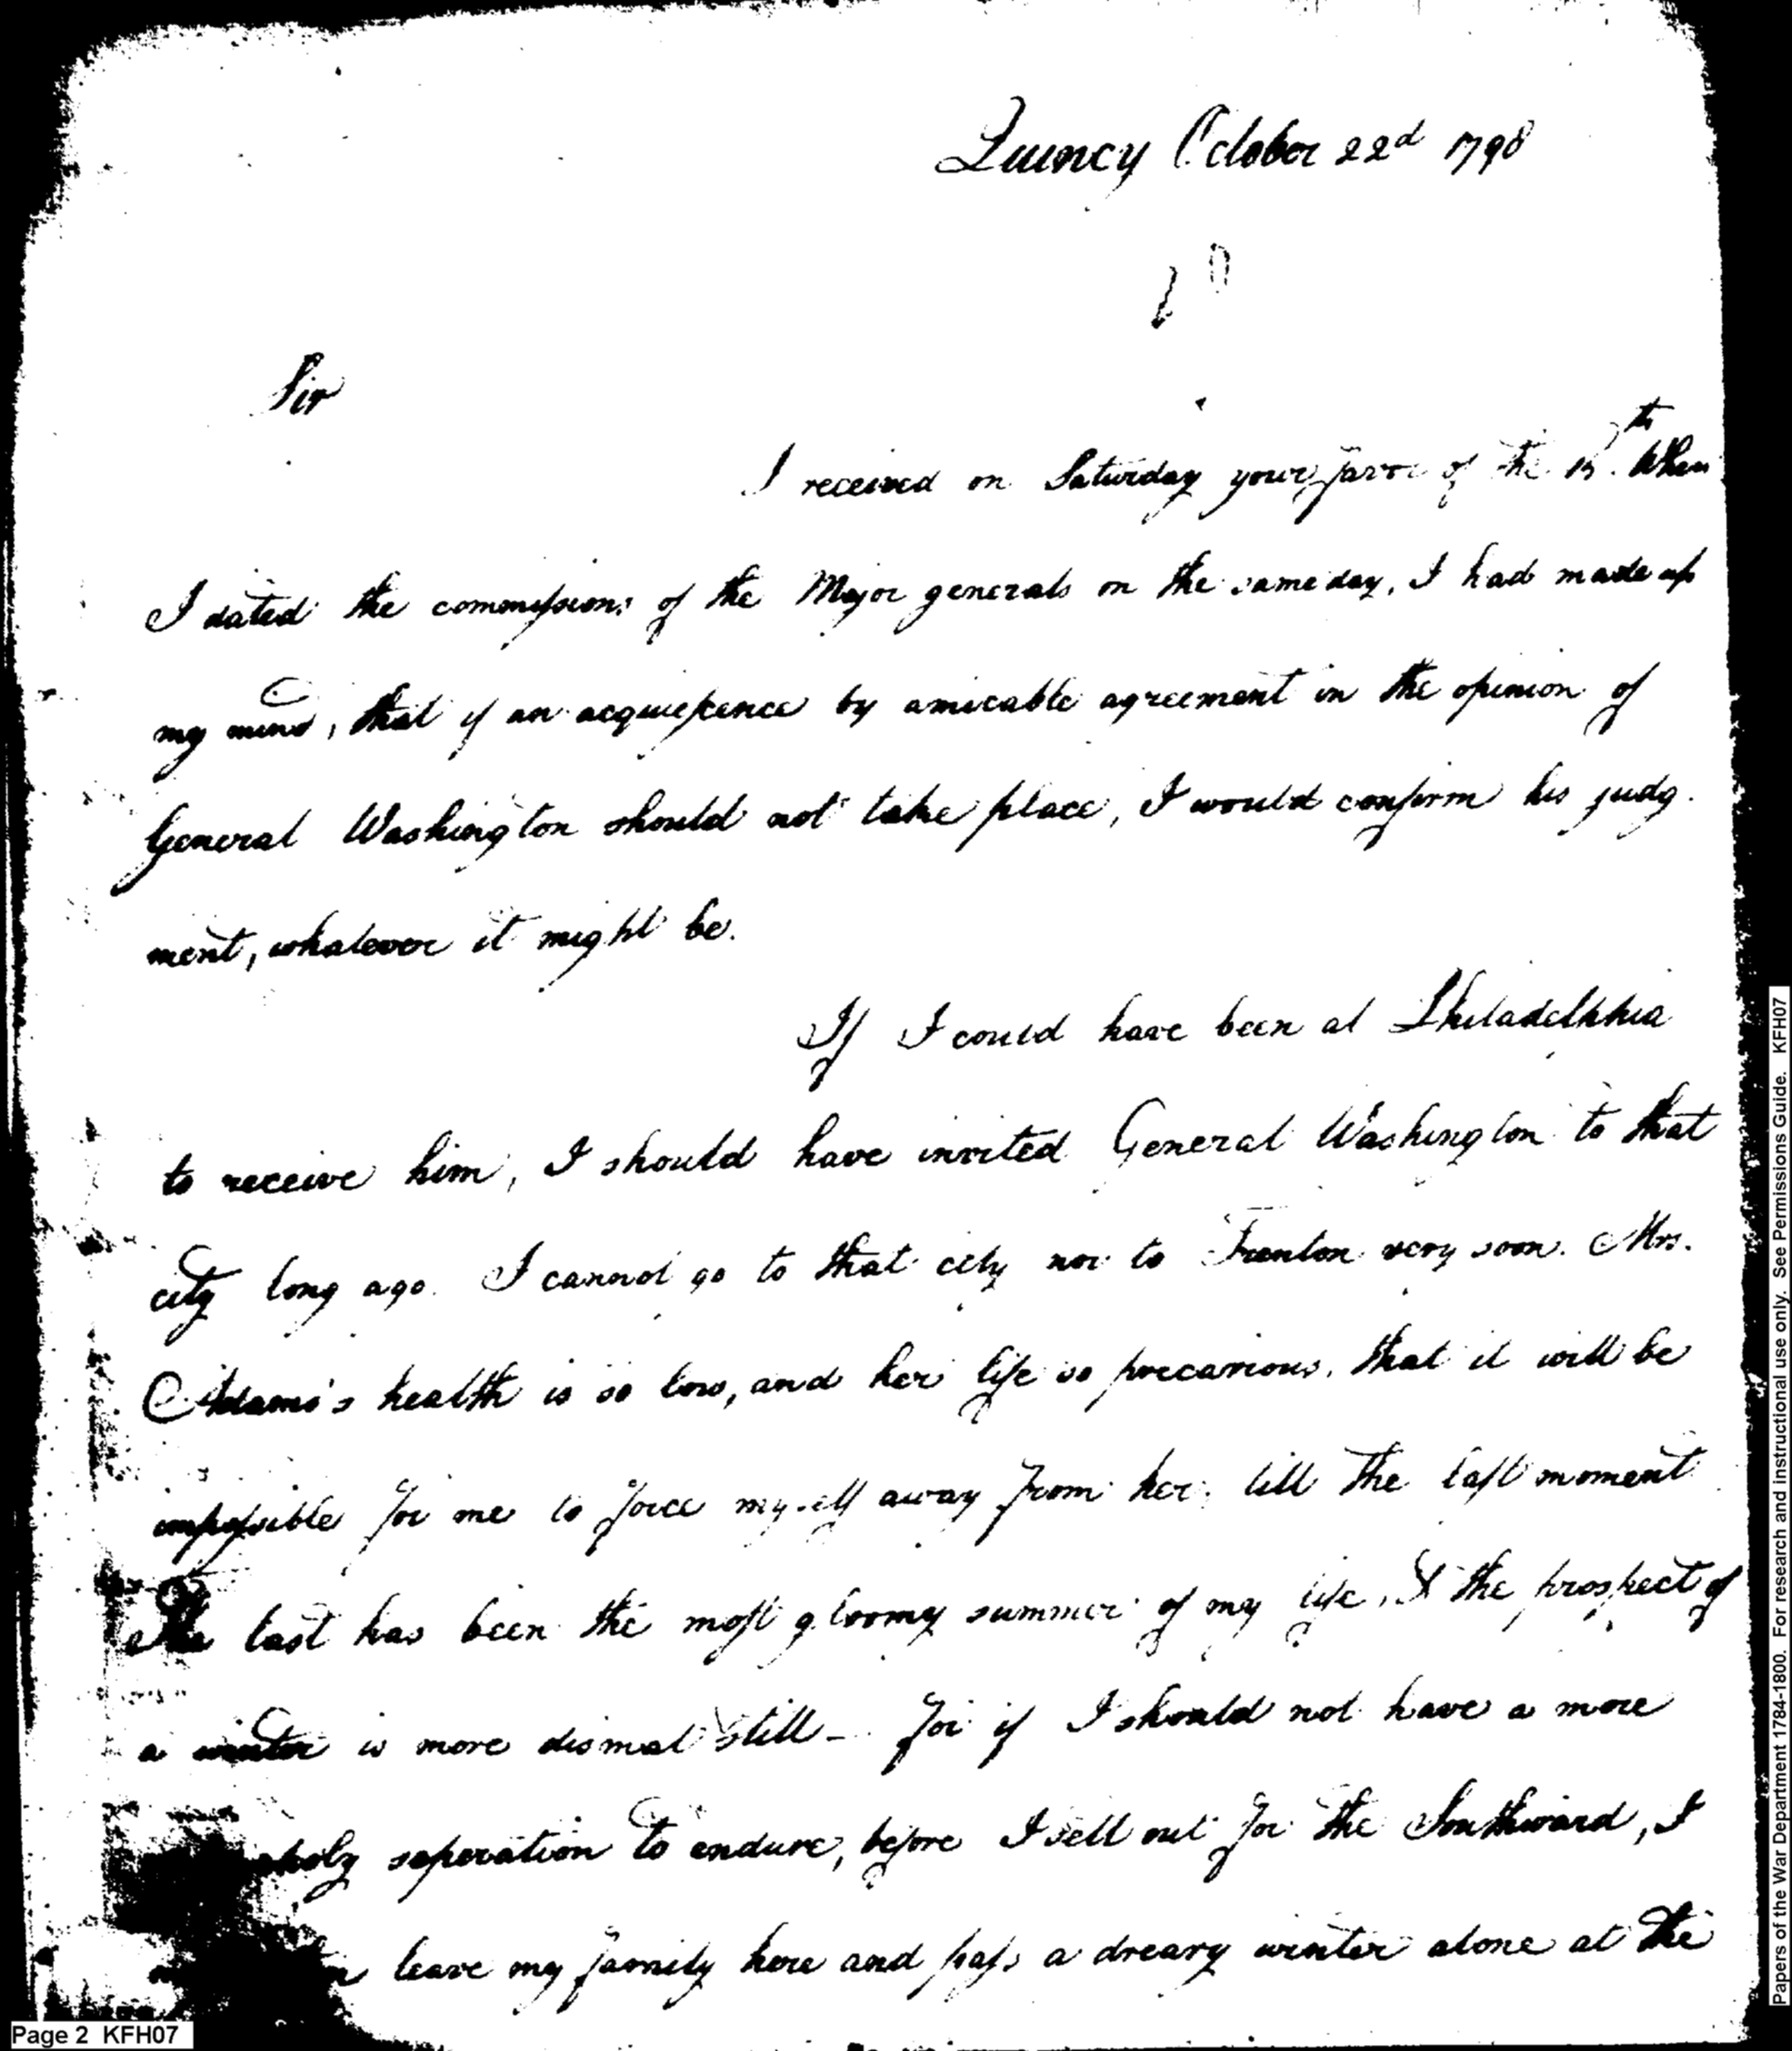 Quincy October 22d 1798
Sir
I received on Saturday your favor of the th. When
I dated the commissions of the Major generals on the same day, I had made up
my mind, that if an acquiescence by amicable agreement in the opinion of
General Washington should not take place, I would confirm his judg
ment, whatever it might be.
If I could have been at Philadelphia
to receive him, I should have invited General Washington to that
city long ago. I cannot go to that city nor to Trenton very soon. Mrs.
Adams's health is so low, and her life so precarious, that it will be
impossible for me to force myself away from her, till the last moment
The last has been the most gloomy summer of my life, & the prospect of
a winter is more dismal still – For if I should not have a more
choly seperation to endure, before I sett out for the Southward, I
leave my family here and pass a dreary winter alone at the
Page 2 KFH07
Papers of the War Department 1784-1800. For research and instructional use only. See Permissions Guide. KFH07